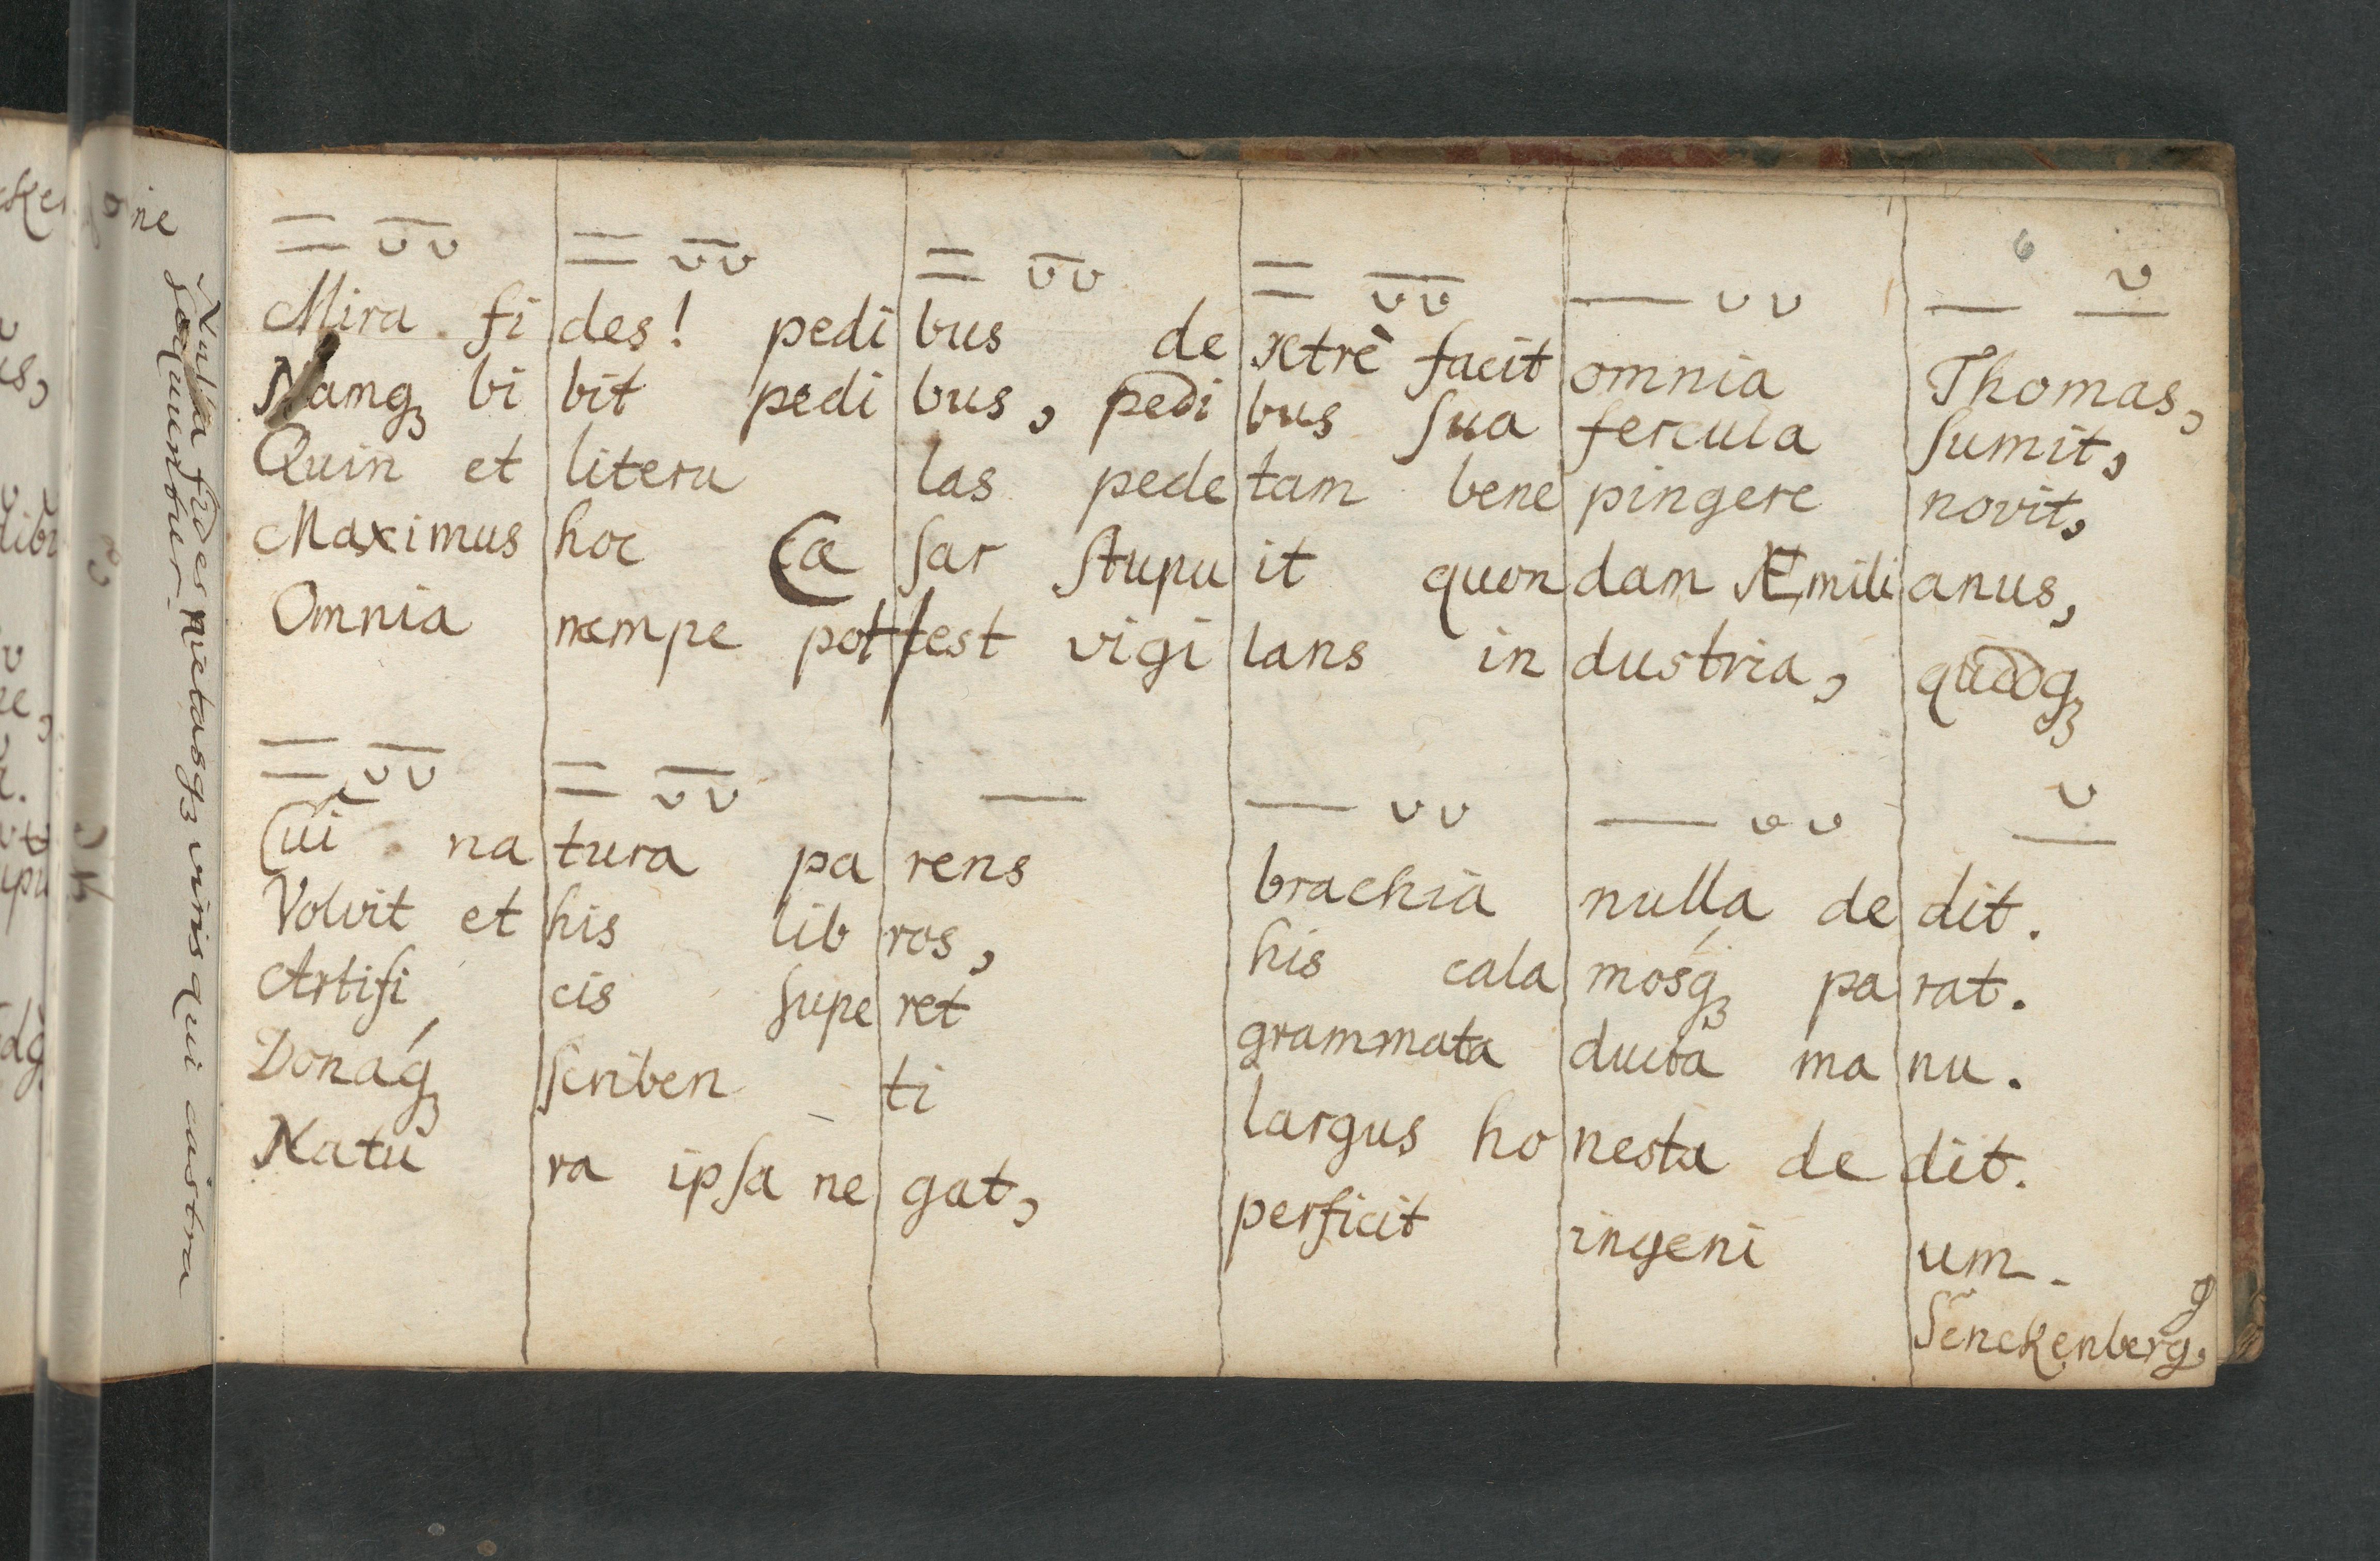 6
Mira fi des! pedi bus de xtrè facit omnia Thomas,
Namqꝫ bi bit pedi bus, pedi bus ſua fercula ſumit,
Quin et litera las pede tam bene pingere novit,
Maximus hoc Cæ ſar ſtupu it quon dam Æmili anus,
Omnia nempe pot est vigi lans in dustria, quodqꝫ
Cui na tura pa rens brachia nulla de dit.
Volvit et his lib ros, his cala mosqꝫ pa rat.
Artifi cis ſupe ret grammata ducta ma nu.
Donáqꝫ ſcriben ti largus ho nesta de dit.
Natu ra ipſa ne gat, perficit ingeni um.
Senckenberg.
Nulla fides pietasqꝫ viris qui castra
sequuntur.
ne